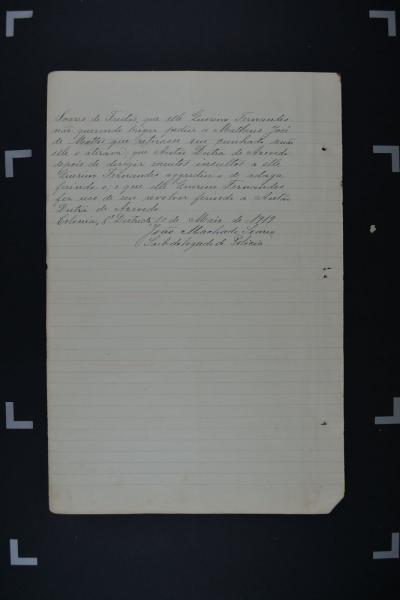 Soares de Freitas, que elle Quirino Fernandes
não querendo brigar pedio a Matheus José
de Mattos que retirasse seu cunhado senão
elle o atirava; que Antão Dutra de Azevedo
depois de dirigir muitos insultos a elle
Quirino Fernandes aggredio-o de adaga
ferindo-o; e que elle Quirino Fernandes
fez uso de seu revolver ferindo a Antão
Dutra de Azevedo.
Colonia, 8º Districto, 10 de Maio de 1919
João Machado Soares
Sub-delegado de Policia